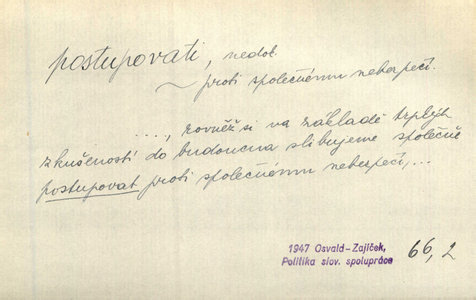 postupovati, nedok.
~ proti společnému nebezpečí.
..., rovněž si na základě trpkých
zkušeností do budoucna slibujeme společně
postupovat proti společnému nebezpečí,...
1947 Osvald-Zajíček,
Politika slov. spolupráce
66,2